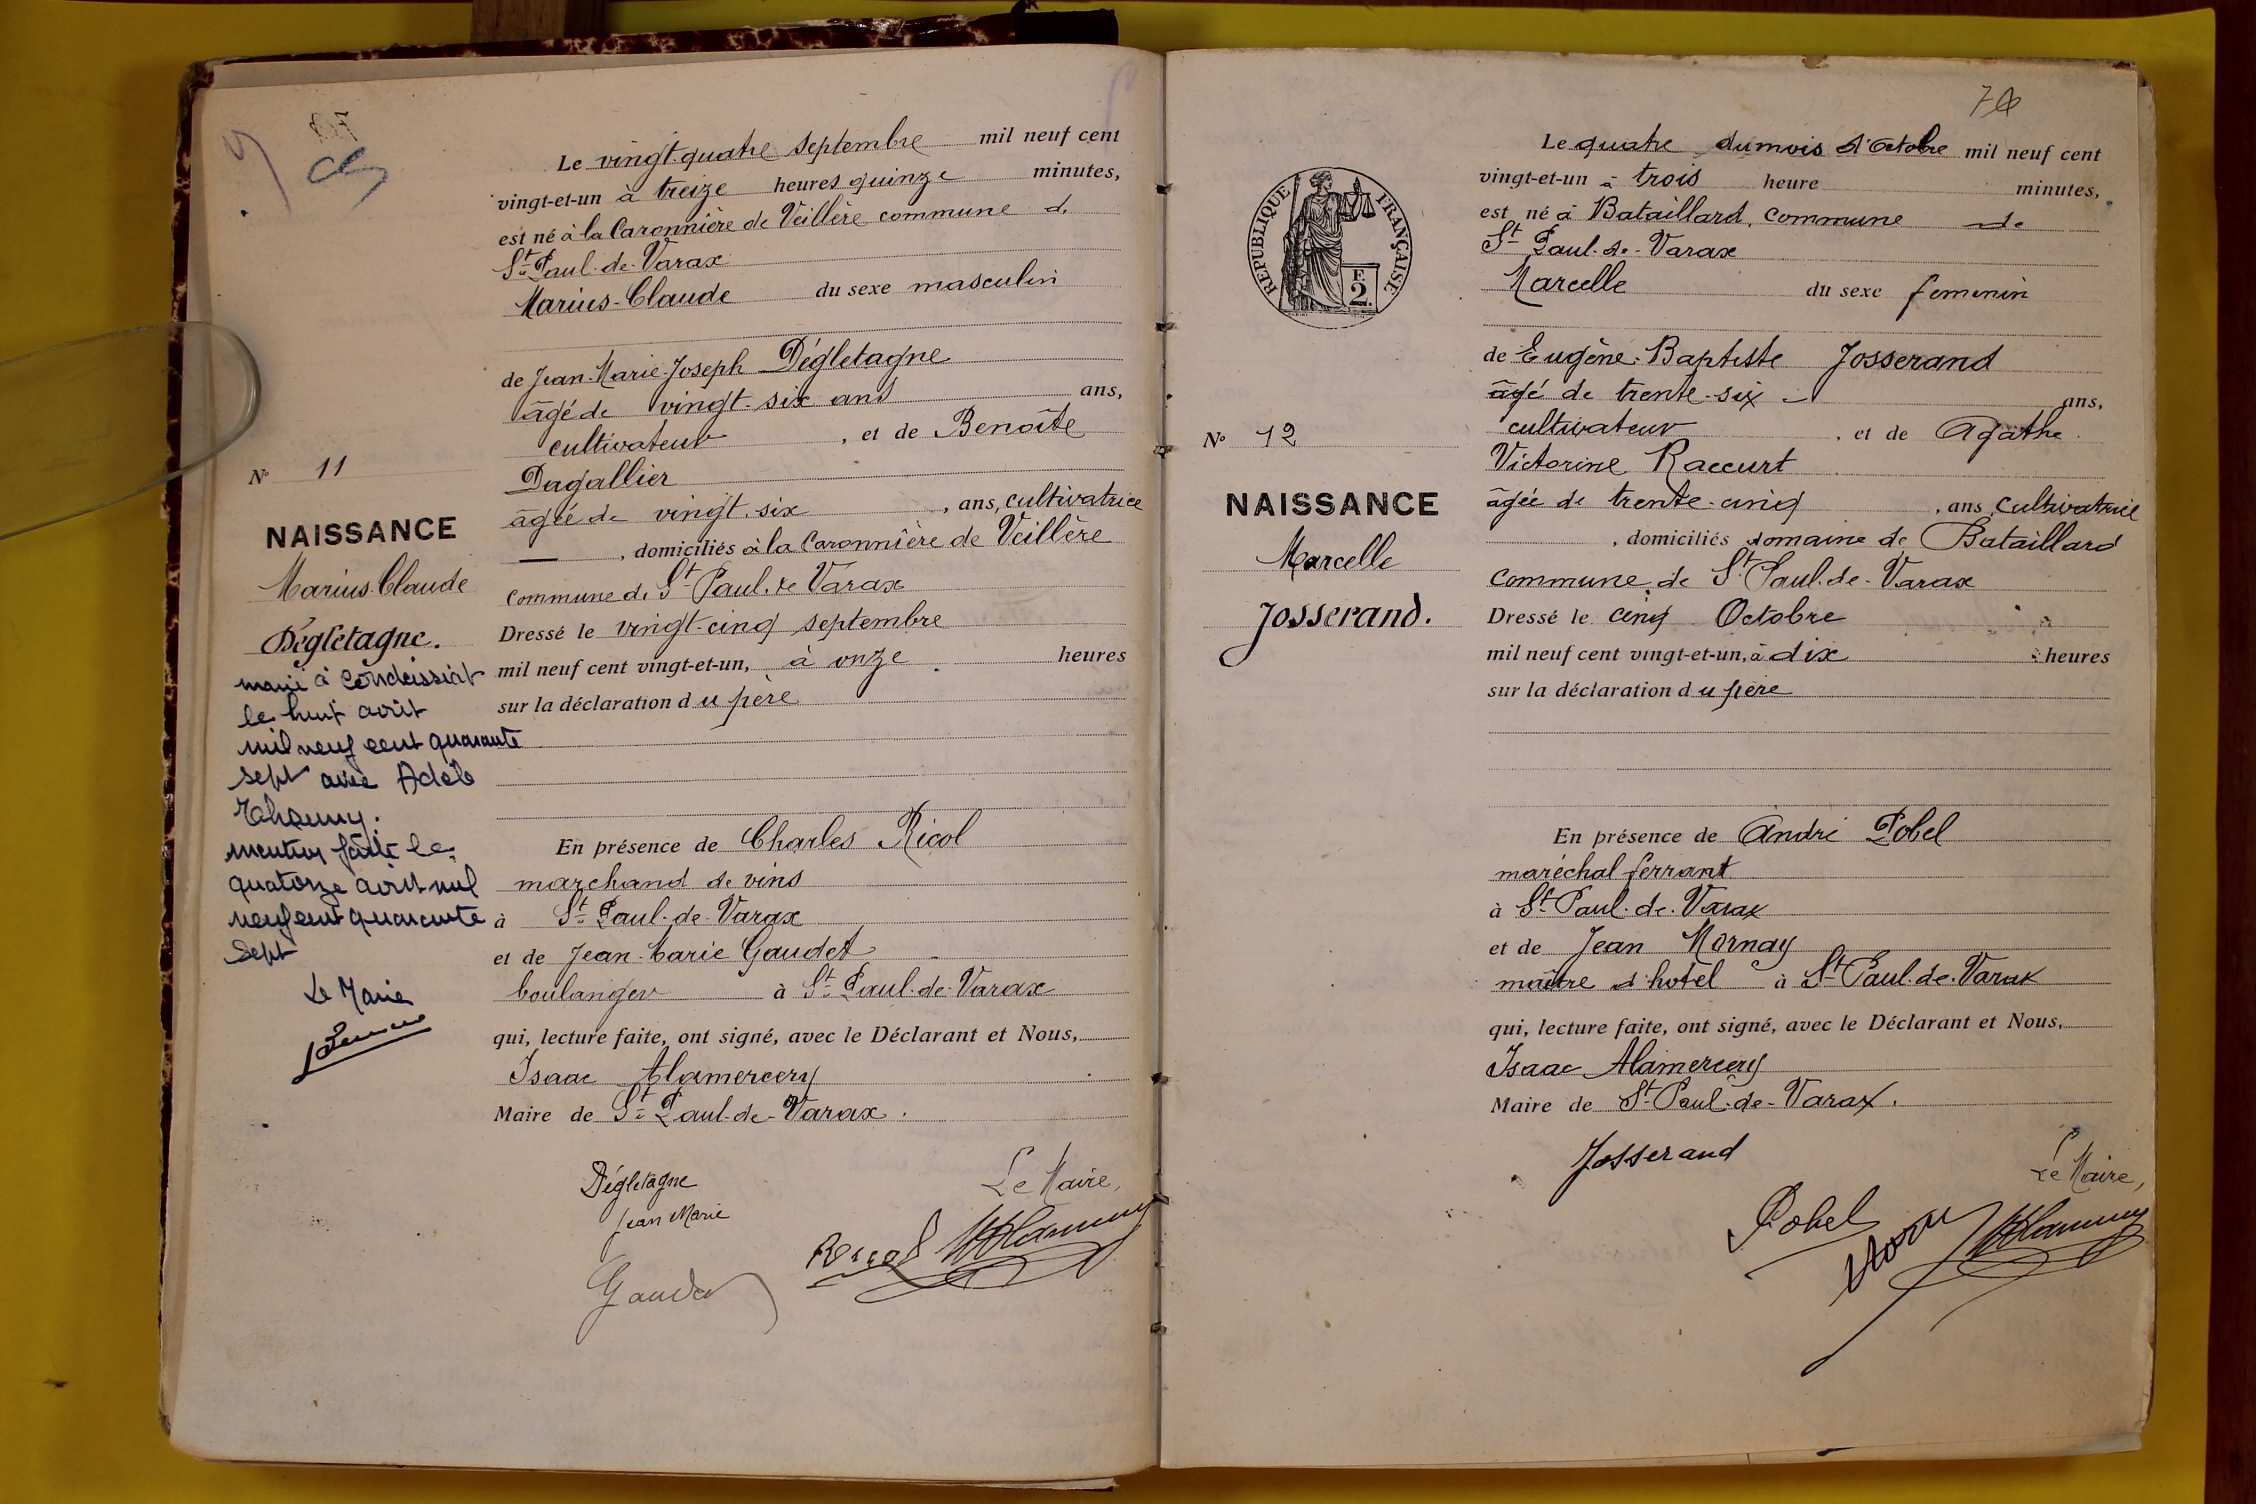 Le vingt-quatre septembre mil neuf cent
vingt-et-un à treize heures quinze minutes,
est né à la Caronnière de Veillère commune de
St Paul-de-Varax
Marius-Claude du sexe masculin
de Jean-Marie-Joseph Dégletagne
âgé de vingt-six ans ans,
cultivateur, et de Benoîte
Dagallier
âgée de vingt-six, ans, cultivatrice
, domiciliés à la Caronnière de Veillère
commune de St Paul de Varax
Dressé le vingt-cinq septembre
mil neuf cent vingt-et-un, à onze heures
sur la déclaration du père
En présence de Charles Ricol
marchand de vins
à St Paul-de-Varax
et de Jean-Marie Gaudet
boulanger à St Paul-de-Varax
qui, lecture faite, ont signé, avec le Déclarant et Nous,
Isaac Alamercery
Maire de St Paul-de-Varax.
Dégletagne
Jean Marie
Le Maire,
Gaudet
Ricol
N° 11
NAISSANCE
Marius-Claude
Dégletagne.
marié à Condeissiat
le huit août
mil neuf cent quarante
sept avec Adèle
mention faite le
quatorze août mil
neuf cent quarante
sept
Le Maire
74
RÉPUBLIQUE FRANÇAISE
F
2
N° 12
NAISSANCE
Marcelle
Josserand.
Le quatre du mois d'Octobre mil neuf cent
vingt-et-un à trois heure minutes,
est né à Bataillard, commune de
St Paul-de-Varax
Marcelle du sexe femenin
de Eugène-Baptiste Josserand
âgé de trente-six ans,
cultivateur, et de Agathe
Victorine Raccurt
âgée de trente-cinq, ans, cultivatrice
, domiciliés domaine de Bataillard
commune de St Paul-de-Varax
Dressé le cinq Octobre
mil neuf cent vingt-et-un, à dix heures
sur la déclaration du père
En présence de André Pobel
maréchal ferrant
à St Paul-de-Varax
et de Jean Mornay
maître d'hotel à St Paul-de-Varax
qui, lecture faite, ont signé, avec le Déclarant et Nous,
Isaac Alamercery
Maire de St Paul-de-Varax.
Josserand
Le Maire,
Pobel